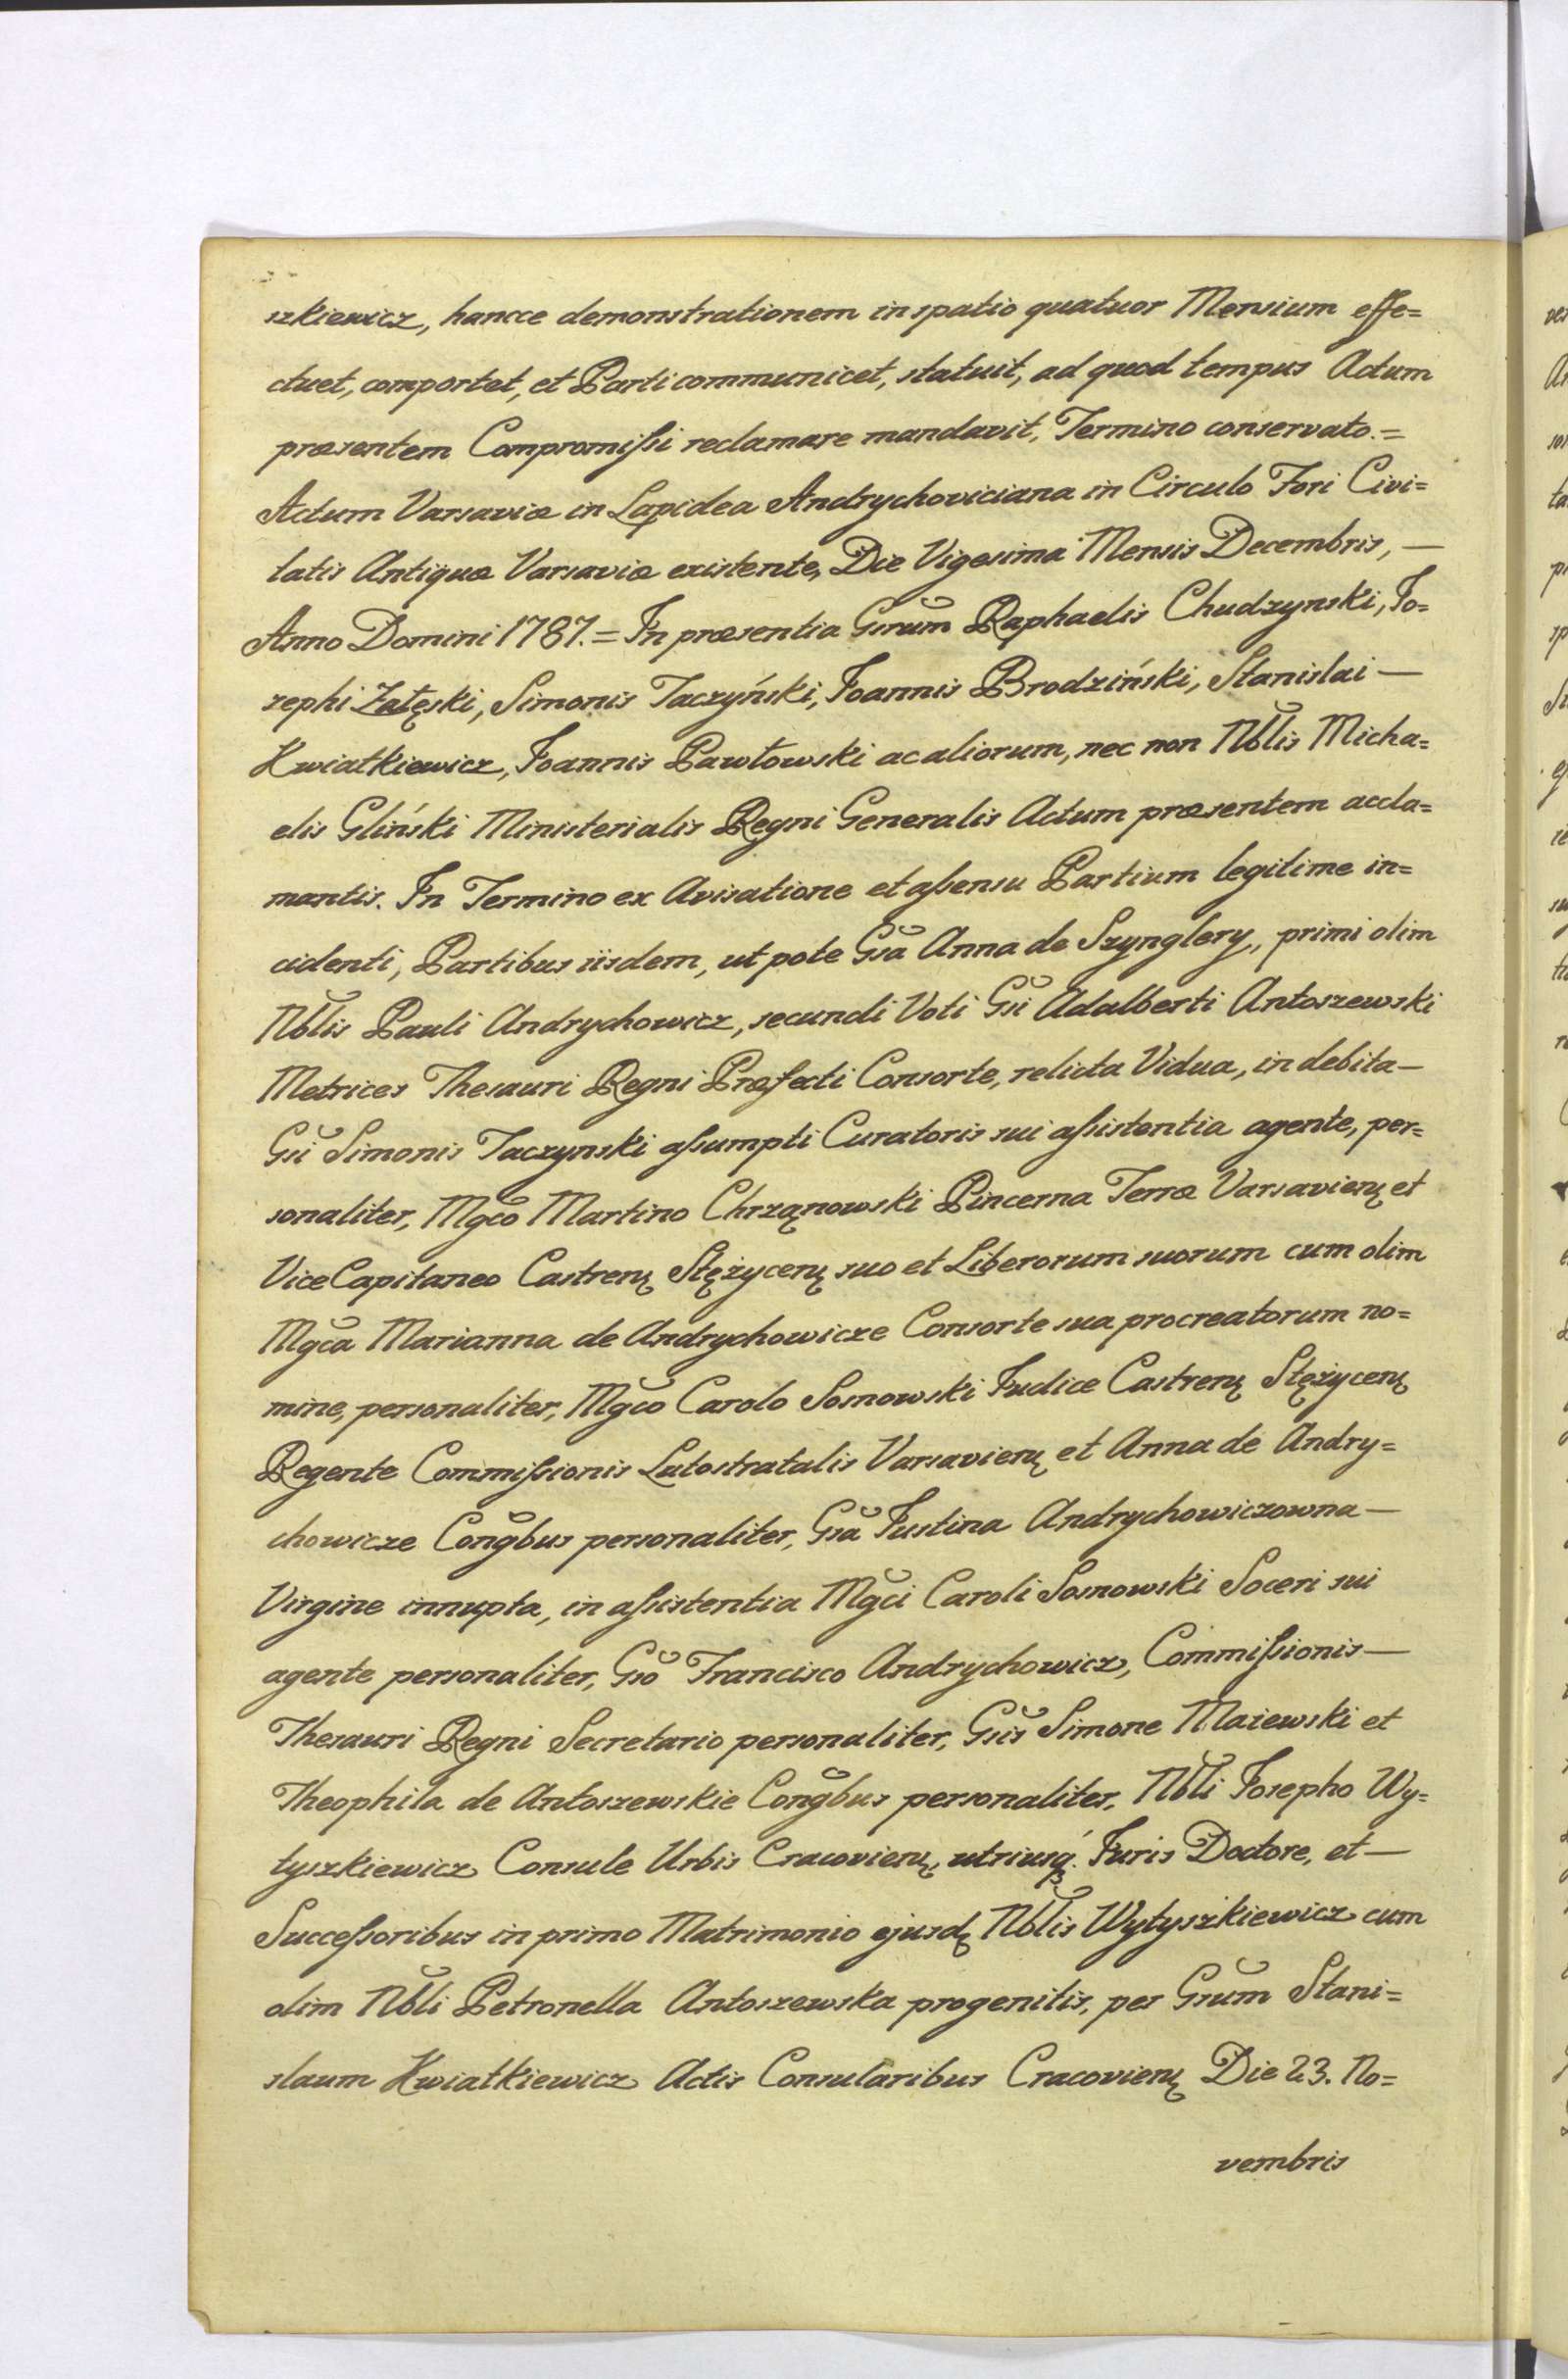 szkiewicz, hancce demonstrationem in spatio quatuor Mensium effe=
ctuet, comportet, et Parti communicet, statuit, ad quod tempus Actum
præsentem Compromiſsi reclamare mandavit, Termino conservato.=
Actum Varsaviæ in Lapidea Andrychoviciana in Circulo Fori Civi=
tatis Antiquæ Varsaviæ existente, Die Vigesima Mensis Decembris, —
Anno Domini 1787.= In præsentia Gsrum̆ Raphaelis Chudzynski, Jo=
zephi Załęski, Simonis Taczyński, Joannis Brodziński, Stanislai —
Kwiatkiewicz, Joannis Pawłowski ac aliorum, nec non Nblis Micha=
elis Gliński Ministerialis Regni Generalis Actum præsentem accla=
mantis. In Termino ex Avisatione et aſsensu Partium legitime in=
cidenti, Partibus iisdem, ut pote Gsă Anna de Szynglery, primi olim
Nblis Pauli Andrychowicz, secundi Voti Gsĭ Adalberti Antoszewski
Metrices Thesauri Regni Præfecti Consorte, relicta Vidua, in debita —
Gsĭ Simonis Taczynski aſsumpti Curatoris sui aſsistentia agente, per=
sonaliter, Mgcŏ Martino Chrząnowski Pincerna Terræ Varsavienȝ et
Vice Capitaneo Castrenȝ Stężycenȝ suo et Liberorum suorum cum olim
Mgcă Marianna de Andrychowicze Consorte sua procreatorum no=
mine, personaliter, Mgcŏ Carolo Sosnowski Judice Castrenȝ Stężycenȝ
Regente Commiſsionis Lutostratalis Varsavienȝ et Anna de Andry=
chowicze Conğbus personaliter, Gsă Justina Andrychowiczowna —
Virgine innupta, in aſsistentia Mgcĭ Caroli Sosnowski Soceri sui
agente personaliter, Gsŏ Francisco Andrychowicz, Commiſsionis —
Thesauri Regni Secretario personaliter, Gsĭs Simone Maiewski et
Theophila de Antoszewskie Conğbus personaliter, Nbli Josepho Wy=
tyszkiewicz Consule Urbis Cracovienȝ, utriusq́. Juris Doctore, et —
Succeſsoribus in primo Matrimonio ejusdȝ Nblis Wytyszkiewicz cum
olim Nbli Petronella Antoszewska progenitis, per Gsum̆ Stani=
slaum Kwiatkiewicz Actis Consularibus Cracovienȝ Die 23. No=
vembris